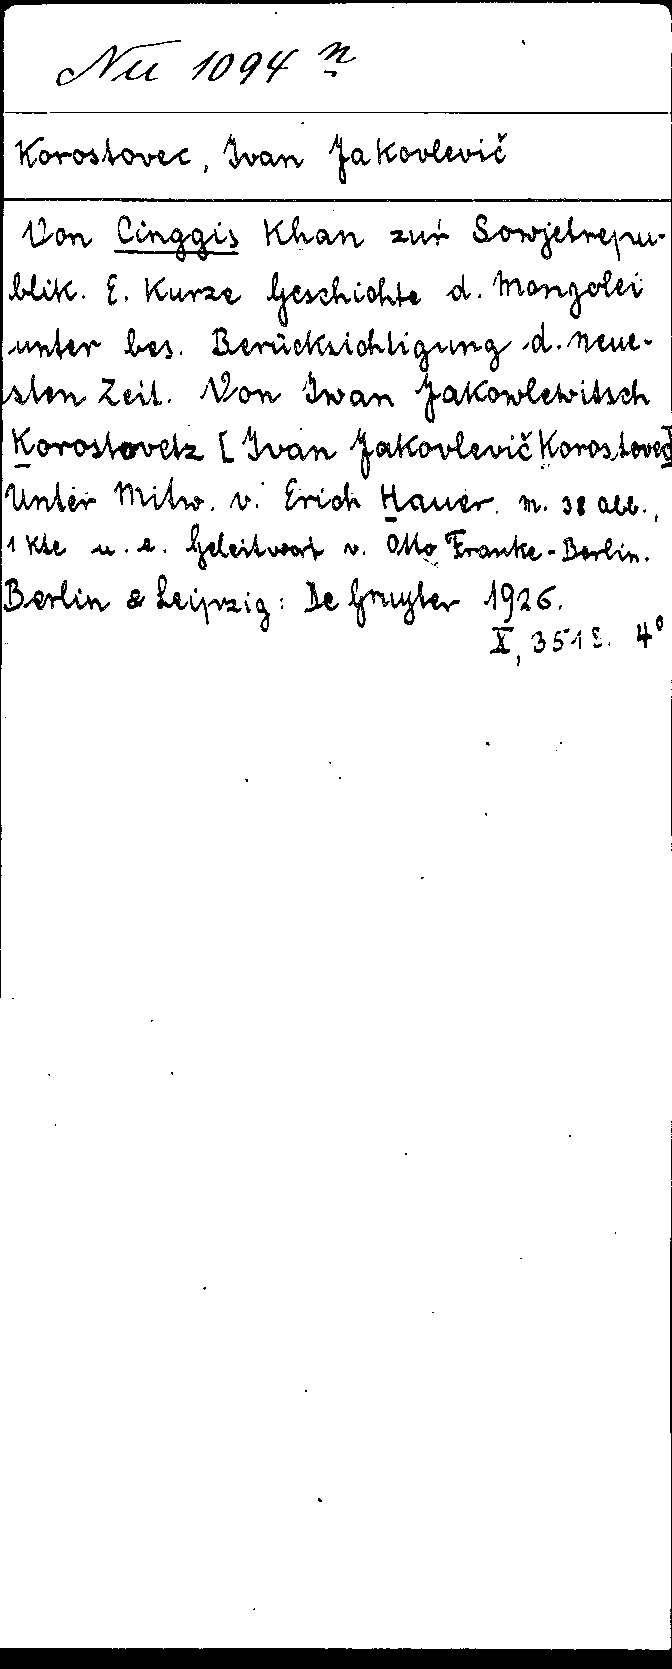 Nu 1094 n
Korostovec, Ivan Jakovlevič
Von Cinggis Khan zur Sowjetrepu-
blik. E. kurze Geschichte d. Mongolei
unter bes. Berücksichtigung d. neue-
sten Zeit. Von Iwan Jakowlewitsch
Korostovetz [Ivan Jakovlevič Korostovec]
Unter Mitw. v. Erich Hauer. M. 38 Abb.,
1 Kte u. e. Geleitwort v. Otto Franke-Berlin.
Berlin & Leipzig: De Gruyter 1926.
X, 351 S. 4°